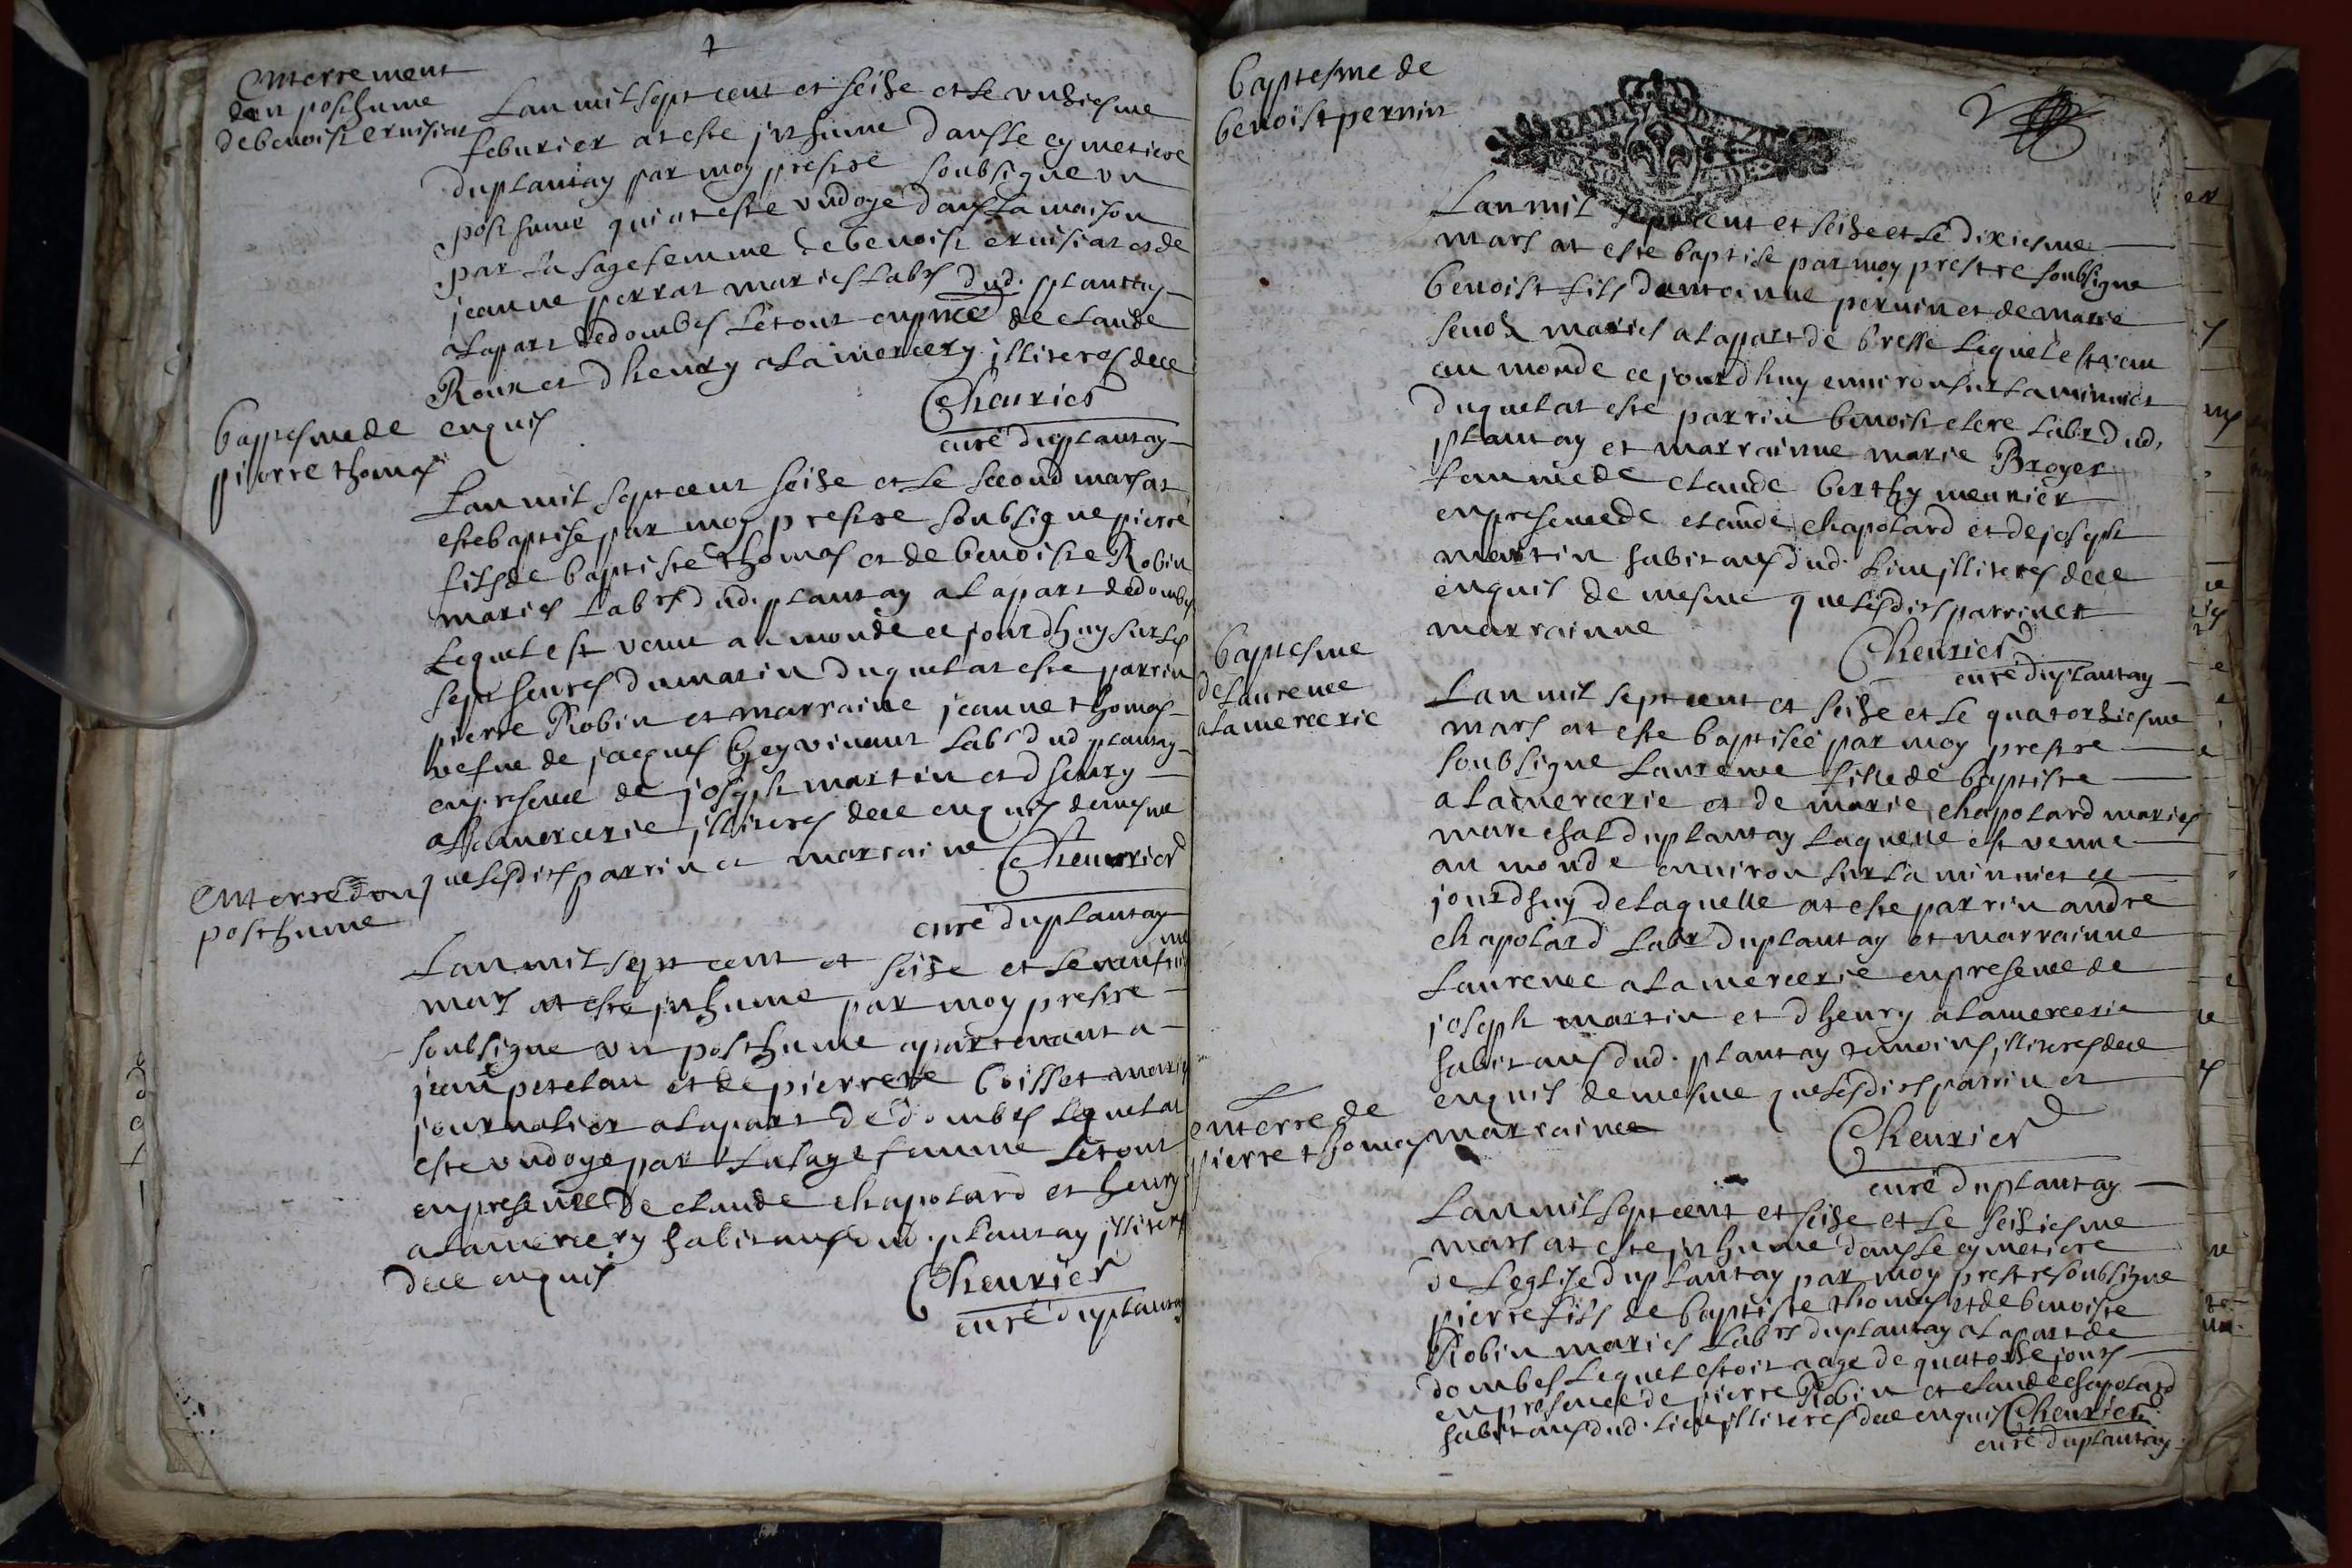 Enterrement
dun posthume
de benoist eruisiat
Lan mil sept cent et seise et le unsiesme
feburier at este inhume dans le cymetiere
du plantay par moy prestre soubsigne un
posthume qui at este undoye dans la maison
par la sage femme de benoist eruisiat et de
jeanne perrat maries labrs dud. plantay
a la part de dombes le tout en pnce de claude
Roux et dhenry alamercery illiteres de ce
enquis
Cheurier
curé du plantay
baptesme de
pierre thomas
Lan mil sept cent seise et le second mars at
este baptise par moy prestre soubsigne pierre
fils de baptiste thomas et de benoiste Robin
maries labrs dud. plantay a la part de dombes
lequel est venu au monde ce jourdhuy sur les
sept heures du matin duquel at este parrin
pierre Robin et marraine jeanne thomas
vefue de jacques vivant labr dud plantay
en presence de joseph martin et dhenry
alamercerie illiteres de ce enquis de mesme
que lesdits parrin et marraine
Cheurier
curé du plantay
Enterre dun
posthume
Lan mil sept cent et seise et le neufme
mars at este inhume par moy prestre
soubsigne un posthume apartenant a
jean petelan et de pierrete boisset maries
journalier a la part de dombes lequel at
este undoye par la sage femme le tout
en presence de claude chapolard et henry
alamercery habitans dud. plantay illiteres
de ce enquis
Cheurier
curé du plantay
baptesme de
benoist pernin
Lan mil sept cent et seise et le dixiesme
mars at este baptise par moy prestre soubsigne
benoist fils dantoinne pernin et de marie
maries a la part de bresse lequel est venu
au monde ce jourdhuy environ sur la minuict
duquel at este parrin benoist clere labr dud.
plantay et marrainne marie Broyer
famme de claude berthy meunier
en presence de claude chapolard et de joseph
martin habitans dud. lieu illiteres de ce
enquis de mesme que lesdits parrin et
marrainne
Cheurier
curé du plantay
baptesme
de laurence
alamercerie
Lan mil sept cent et seise et le quatorsiesme
mars at este baptisée par moy prestre
soubsigne laurence fille de baptiste
alamercerie et de marie chapolard maries
marechal du plantay laquelle est venue
au monde environ sur la minuict ce
jourdhuy de laquelle at este parrin andre
chapolard labr du plantay et marrainne
laurence alamercerie en presence de
joseph martin et dhenry alamercerie
habitans dud. plantay temoins illiteres de ce
enquis de mesme que lesdits parrin et
marrainee
Cheurier
curé du plantay
enterre de
pierre thomas
Lan mil sept cent et seise et le seisiesme
mars at este inhume dans le cymetiere
de leglise du plantay par moy prestre soubsigne
pierre fils de baptiste thomas et de benoiste
Robin maries labrs du plantay a la part de
dombes lequel estoit aage de quatorse jours
en presence de pierre Robin et claude chapolard
habitans dud. lieu illiteres de ce enquis Cheurier
curé du plantay